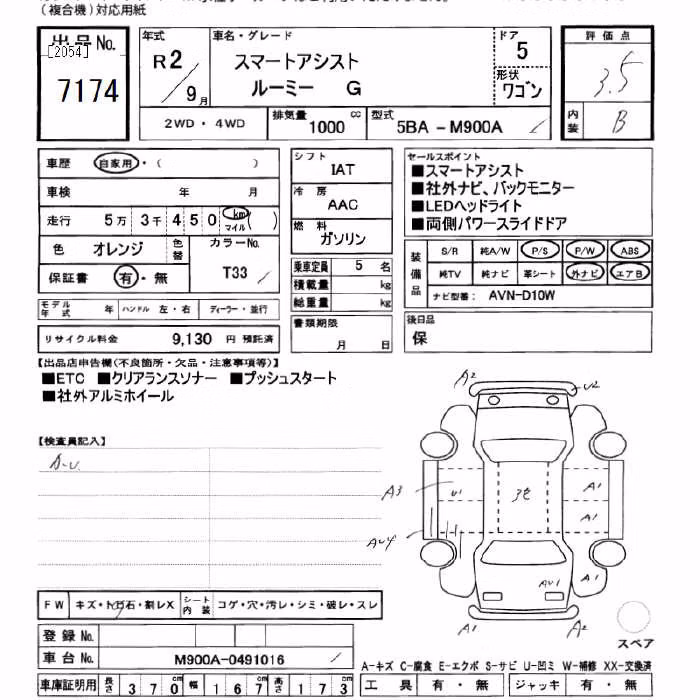 (複合機)対応用紙
出品No.
[2054]
7174
年式
R2/9月
車名・グレード
スマートアシスト
ルーミー G
ドア
5
形状
ワゴン
評価点
3.5
内装
B
2WD・4WD
排気量
1000 cc
型式
5BA-M900A
車歴 自家用・( )
車検 年 月
走行 5万 3千 450 km マイル( )
色 オレンジ
色替
カラーNo.
T33
保証書 有・無
モデル年式 年 ハンドル 左・右 ディーラー・並行
リサイクル料金 9,130 円 預託済
シフト
IAT
冷房
AAC
燃料
ガソリン
乗車定員 5 名
積載量 kg
総重量 kg
書類期限
月 日
セールスポイント
■スマートアシスト
■社外ナビ、バックモニター
■LEDヘッドライト
■両側パワースライドドア
装備品
S/R 純A/W P/S P/W ABS
純TV 純ナビ 革シート 外ナビ エアB
ナビ型番: AVN-D10W
後日品
保
【出品店申告欄(不良箇所・欠品・注意事項等)】
■ETC ■クリアランスソナー ■プッシュスタート
■社外アルミホイール
【検査員記入】
A-U
A2
U2
A3
U1
A1
A1
AU4
AU1
A1
A1
A2
FW キズ・トビ石・割レX
シート内装 コゲ・穴・汚レ・シミ・破レ・スレ
登録No.
車台No. M900A-0491016
車庫証明用 長さ 370 幅 167 高さ 173
スペア
A-キズ C-腐食 E-エクボ S-サビ U-凹ミ W-補修 XX-交換済
工具 有・無 ジャッキ 有・無